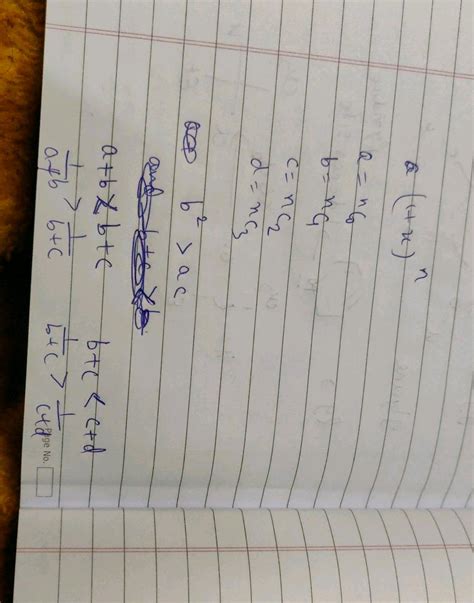 (1+x)^n
a = nC0
b = nC1
c = nC2
d = nC3
b² > ac
a+b < b+c    b+c < c+d
1/(a+b) > 1/(b+c)    1/(b+c) > 1/(c+d)
Page No.